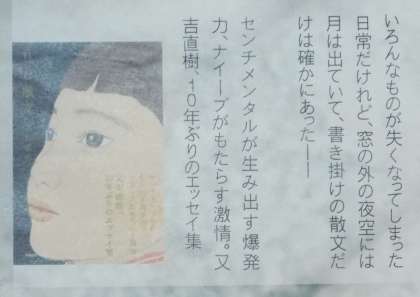 いろんなものが失くなってしまった
日常だけれど、窓の外の夜空には
月は出ていて、書き掛けの散文だ
けは確かにあった――
センチメンタルが生み出す爆発
力、ナイーブがもたらす激情。又
吉直樹、10年ぶりのエッセイ集